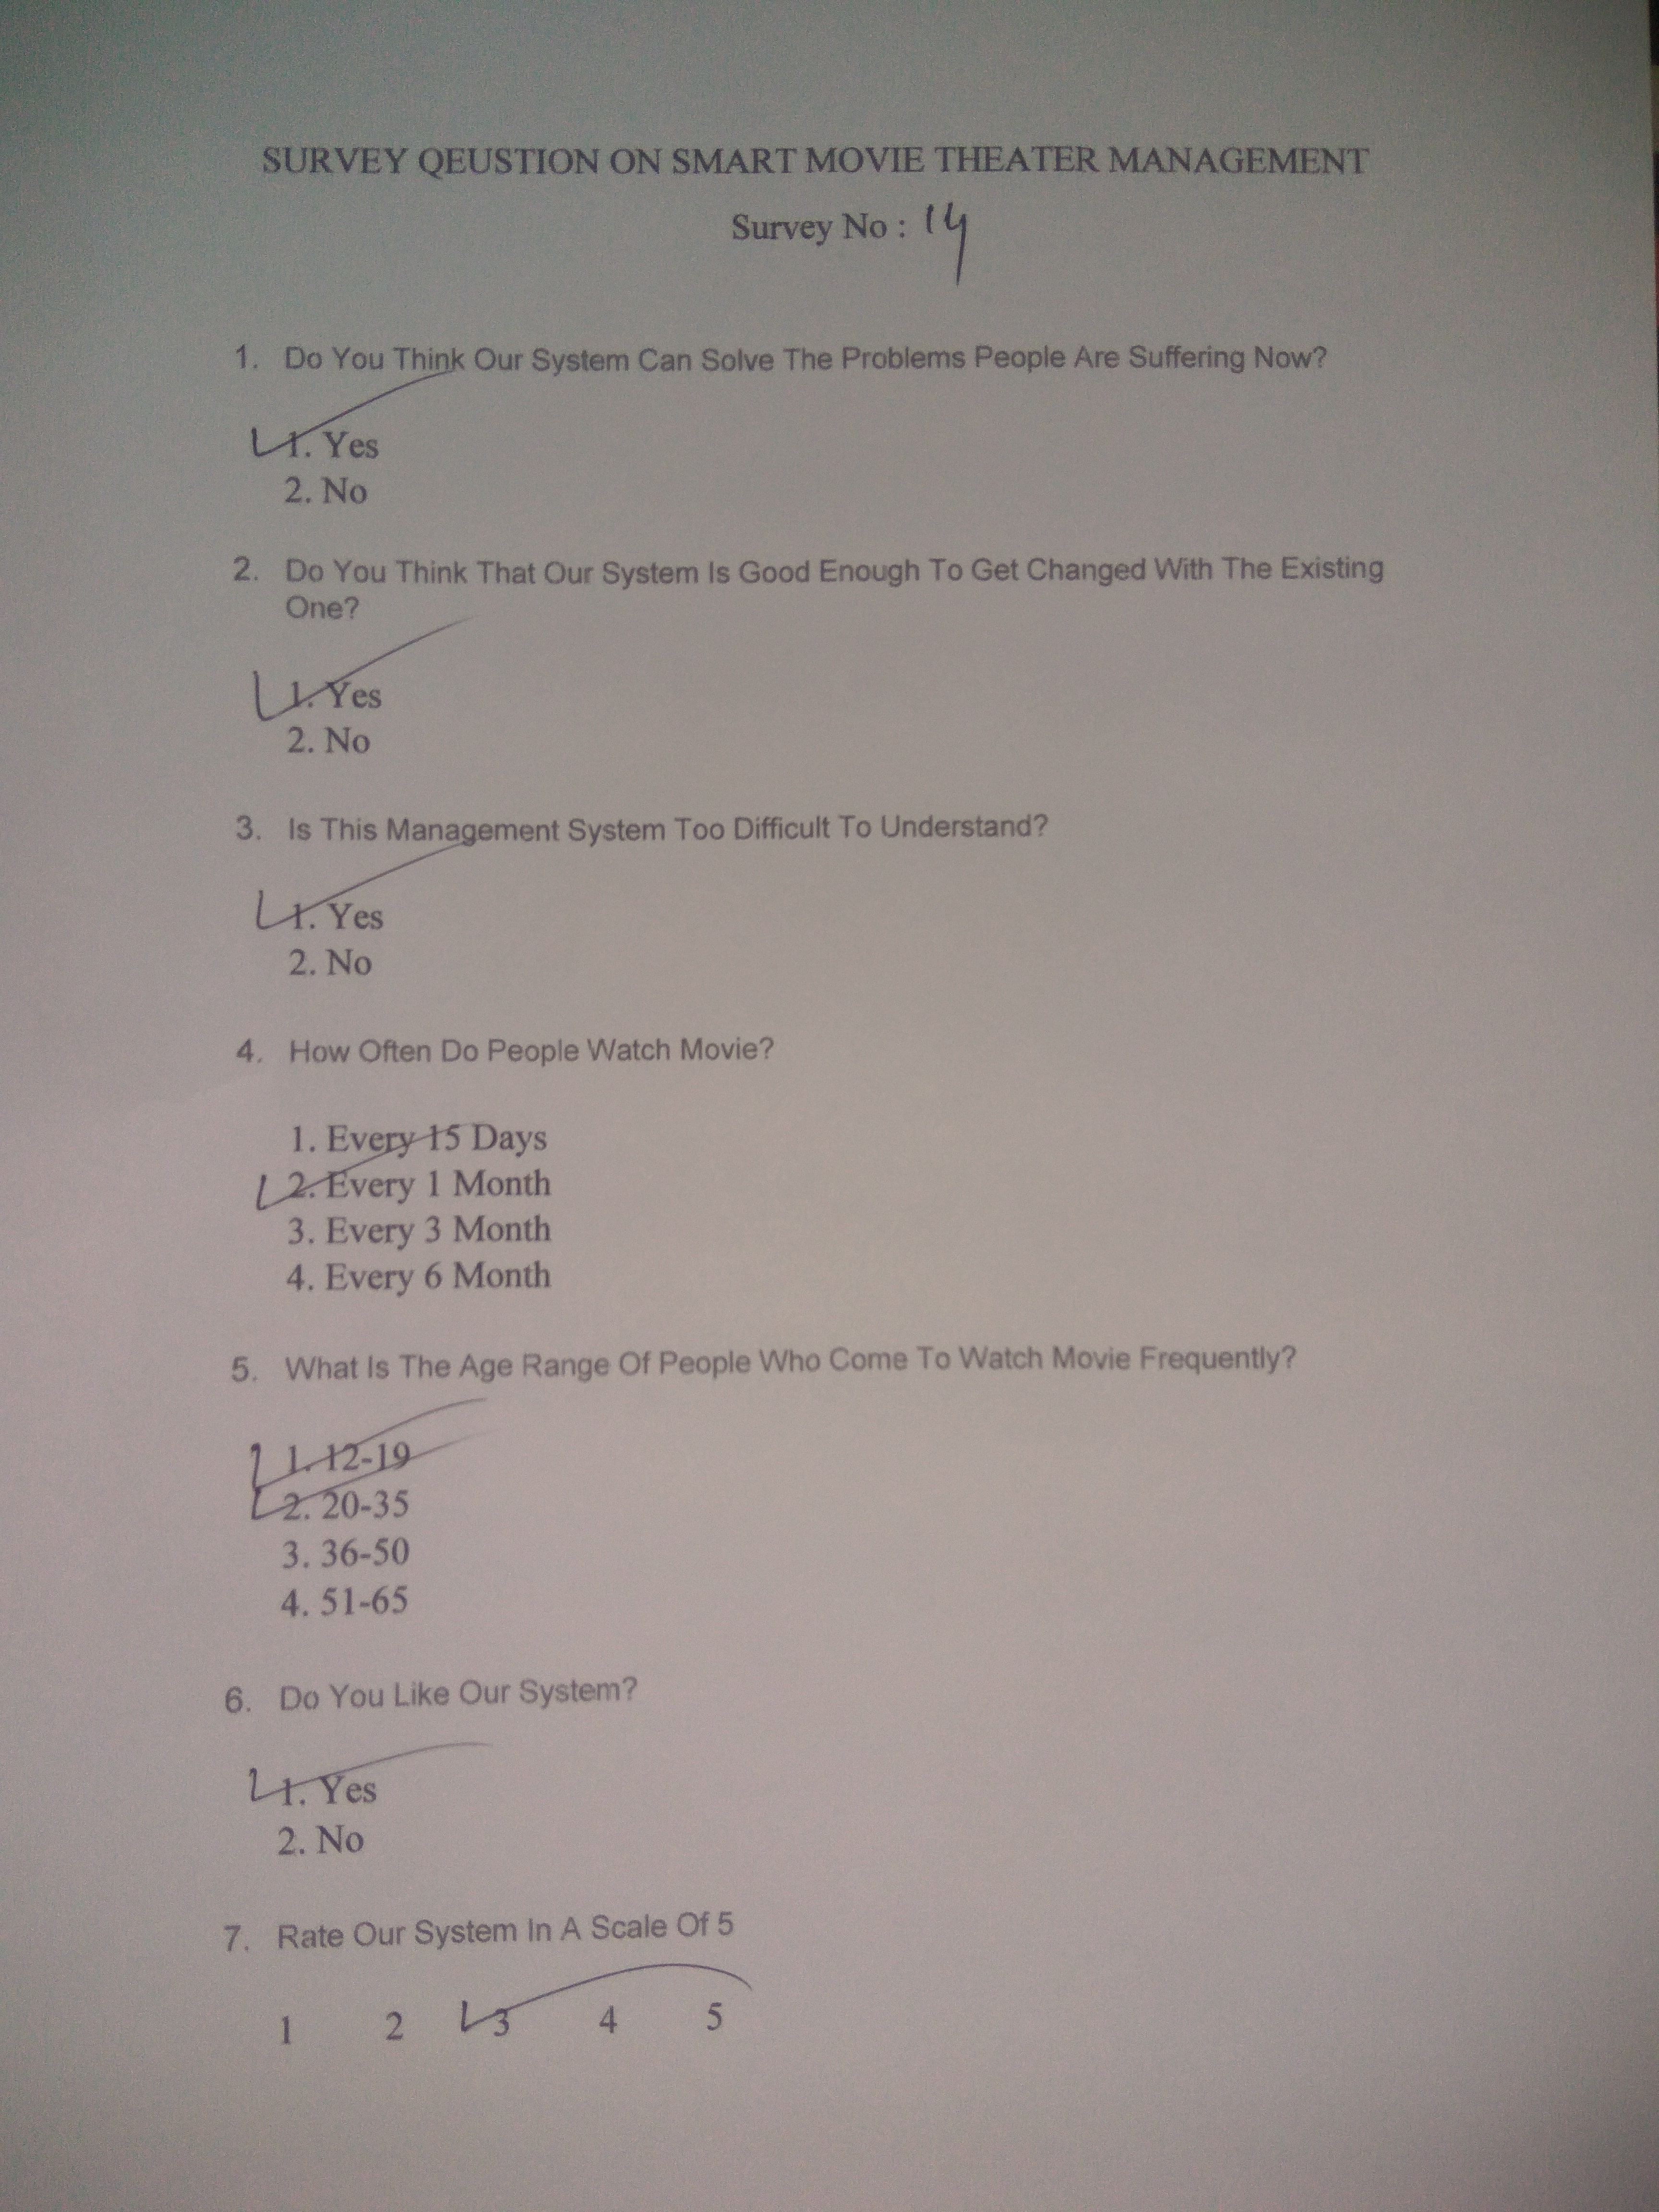 SURVEY QEUSTION ON SMART MOVIE THEATER MANAGEMENT
Survey No : 14
1. Do You Think Our System Can Solve The Problems People Are Suffering Now?
1. Yes
2. No
2. Do You Think That Our System Is Good Enough To Get Changed With The Existing
One?
1. Yes
2. No
3. Is This Management System Too Difficult To Understand?
1. Yes
2. No
4. How Often Do People Watch Movie?
1. Every 15 Days
2. Every 1 Month
3. Every 3 Month
4. Every 6 Month
5. What Is The Age Range Of People Who Come To Watch Movie Frequently?
1. 12-19
2. 20-35
3. 36-50
4. 51-65
6. Do You Like Our System?
1. Yes
2. No
7. Rate Our System In A Scale Of 5
1 2 3 4 5